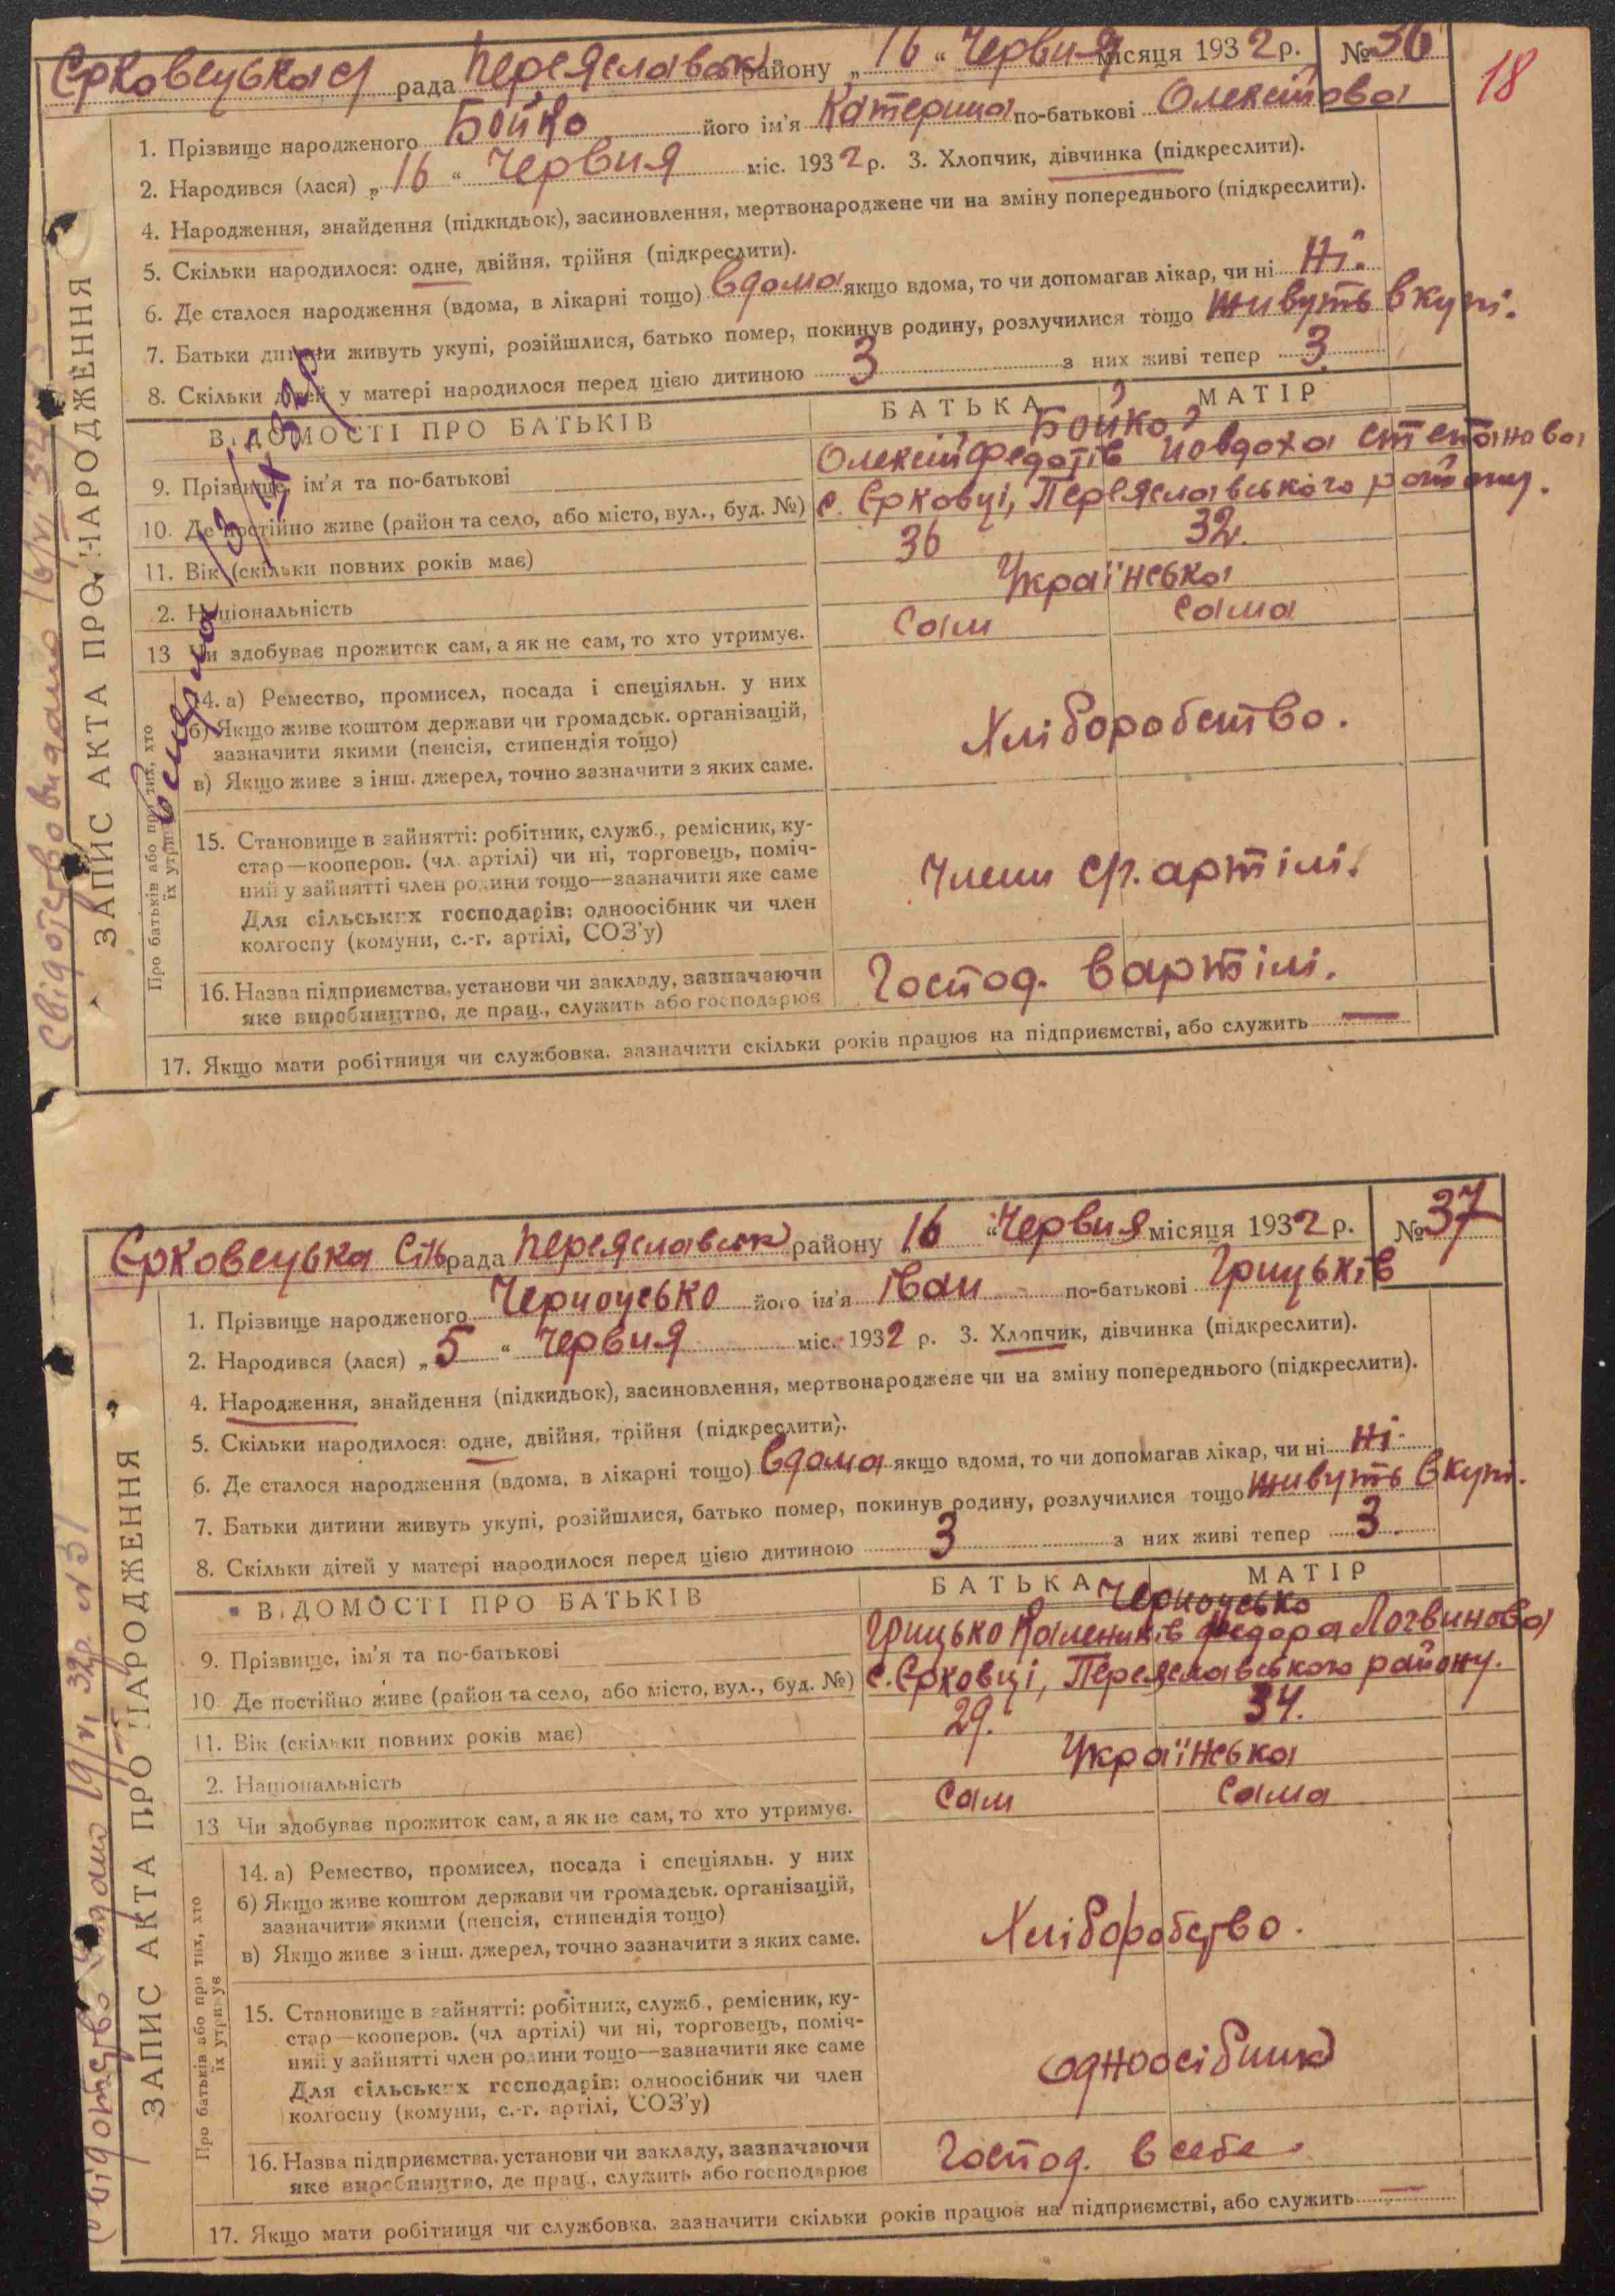 Єрковецька рада Переяславськ району „16“ Червня місяця 1932 р. № 36
18
1. Прізвище народженого Бойко його ім'я Катерина по-батькові Олексійова
2. Народився (лася) „16“ Червня міс. 1932 р. 3. Хлопчик, дівчинка (підкреслити).
4. Народження, знайдення (підкидьок), засиновлення, мертвонароджене чи на зміну попереднього (підкреслити).
5. Скільки народилося: одне, двійня, трійня (підкреслити).
6. Де сталося народження (вдома, в лікарні тощо) вдома якщо вдома, то чи допомагав лікар, чи ні Ні.
7. Батьки дитини живуть укупі, розійшлися, батько помер, покинув родину, розлучилися тощо живуть вкупі.
8. Скільки дітей у матері народилося перед цією дитиною 3 з них живі тепер 3.
ВІДОМОСТІ ПРО БАТЬКІВ БАТЬКА МАТІР
Бойко
9. Прізвище, ім'я та по-батькові Олексій Федотів Повдоха Степанова
10. Де постійно живе (район та село, або місто, вул., буд. №) с. Єрковці, Переяславського району.
11. Вік (скільки повних років має) 36 32.
2. Національність Українська
13 Чи здобуває прожиток сам, а як не сам, то хто утримує. Сам Сама
Про батьків або про тих, хто їх утримує
14. а) Ремество, промисел, посада і спеціяльн. у них
б) Якщо живе коштом держави чи громадськ. організацій,
зазначити якими (пенсія, стипендія тощо) Хліборобство.
в) Якщо живе з інш. джерел, точно зазначити з яких саме.
15. Становище в зайнятті: робітник, служб., ремісник, ку-
стар—кооперов. (чл. артілі) чи ні, торговець, поміч-
ний у зайнятті член родини тощо—зазначити яке саме Члени с/г. артілі.
Для сільських господарів: одноосібник чи член
колгоспу (комуни, с.-г. артілі, СОЗ'у)
16. Назва підприємства, установи чи закладу, зазначаючи Господ. в артілі.
яке виробництво, де прац., служить або господарює
17. Якщо мати робітниця чи службовка, зазначити скільки років працює на підприємстві, або служить —
ЗАПИС АКТА ПРО НАРОДЖЕННЯ
Свідоцтво видано 16/VI 32
Єрковецька Сіль рада Переяславськ району „16“ Червня місяця 1932 р. № 37
1. Прізвище народженого Черноусько його ім'я Іван по-батькові Грицьків
2. Народився (лася) „5“ Червня міс. 1932 р. 3. Хлопчик, дівчинка (підкреслити).
4. Народження, знайдення (підкидьок), засиновлення, мертвонароджене чи на зміну попереднього (підкреслити).
5. Скільки народилося: одне, двійня, трійня (підкреслити).
6. Де сталося народження (вдома, в лікарні тощо) вдома якщо вдома, то чи допомагав лікар, чи ні Ні.
7. Батьки дитини живуть укупі, розійшлися, батько помер, покинув родину, розлучилися тощо живуть вкупі.
8. Скільки дітей у матері народилося перед цією дитиною 3 з них живі тепер 3.
ВІДОМОСТІ ПРО БАТЬКІВ БАТЬКА МАТІР
Черноусько
9. Прізвище, ім'я та по-батькові Грицько Калеників Федора Логвинова
10 Де постійно живе (район та село, або місто, вул., буд. №) с. Єрковці, Переяславського району.
11. Вік (скільки повних років має) 29. 34.
2. Національність Українська
13 Чи здобуває прожиток сам, а як не сам, то хто утримує. Сам Сама
Про батьків або про тих, хто їх утримує
14. а) Ремество, промисел, посада і спеціяльн. у них
б) Якщо живе коштом держави чи громадськ. організацій,
зазначити якими (пенсія, стипендія тощо) Хліборобство.
в) Якщо живе з інш. джерел, точно зазначити з яких саме.
15. Становище в зайнятті: робітник, служб., ремісник, ку-
стар—кооперов. (чл артілі) чи ні, торговець, поміч-
ний у зайнятті член родини тощо—зазначити яке саме одноосібник
Для сільських господарів: одноосібник чи член
колгоспу (комуни, с.-г. артілі, СОЗ'у)
16. Назва підприємства, установи чи закладу, зазначаючи Господ. в себе.
яке виробництво, де прац., служить або господарює
17. Якщо мати робітниця чи службовка, зазначити скільки років працює на підприємстві, або служить —
ЗАПИС АКТА ПРО НАРОДЖЕННЯ
Свідоцтво видано 19/VI 32р. №